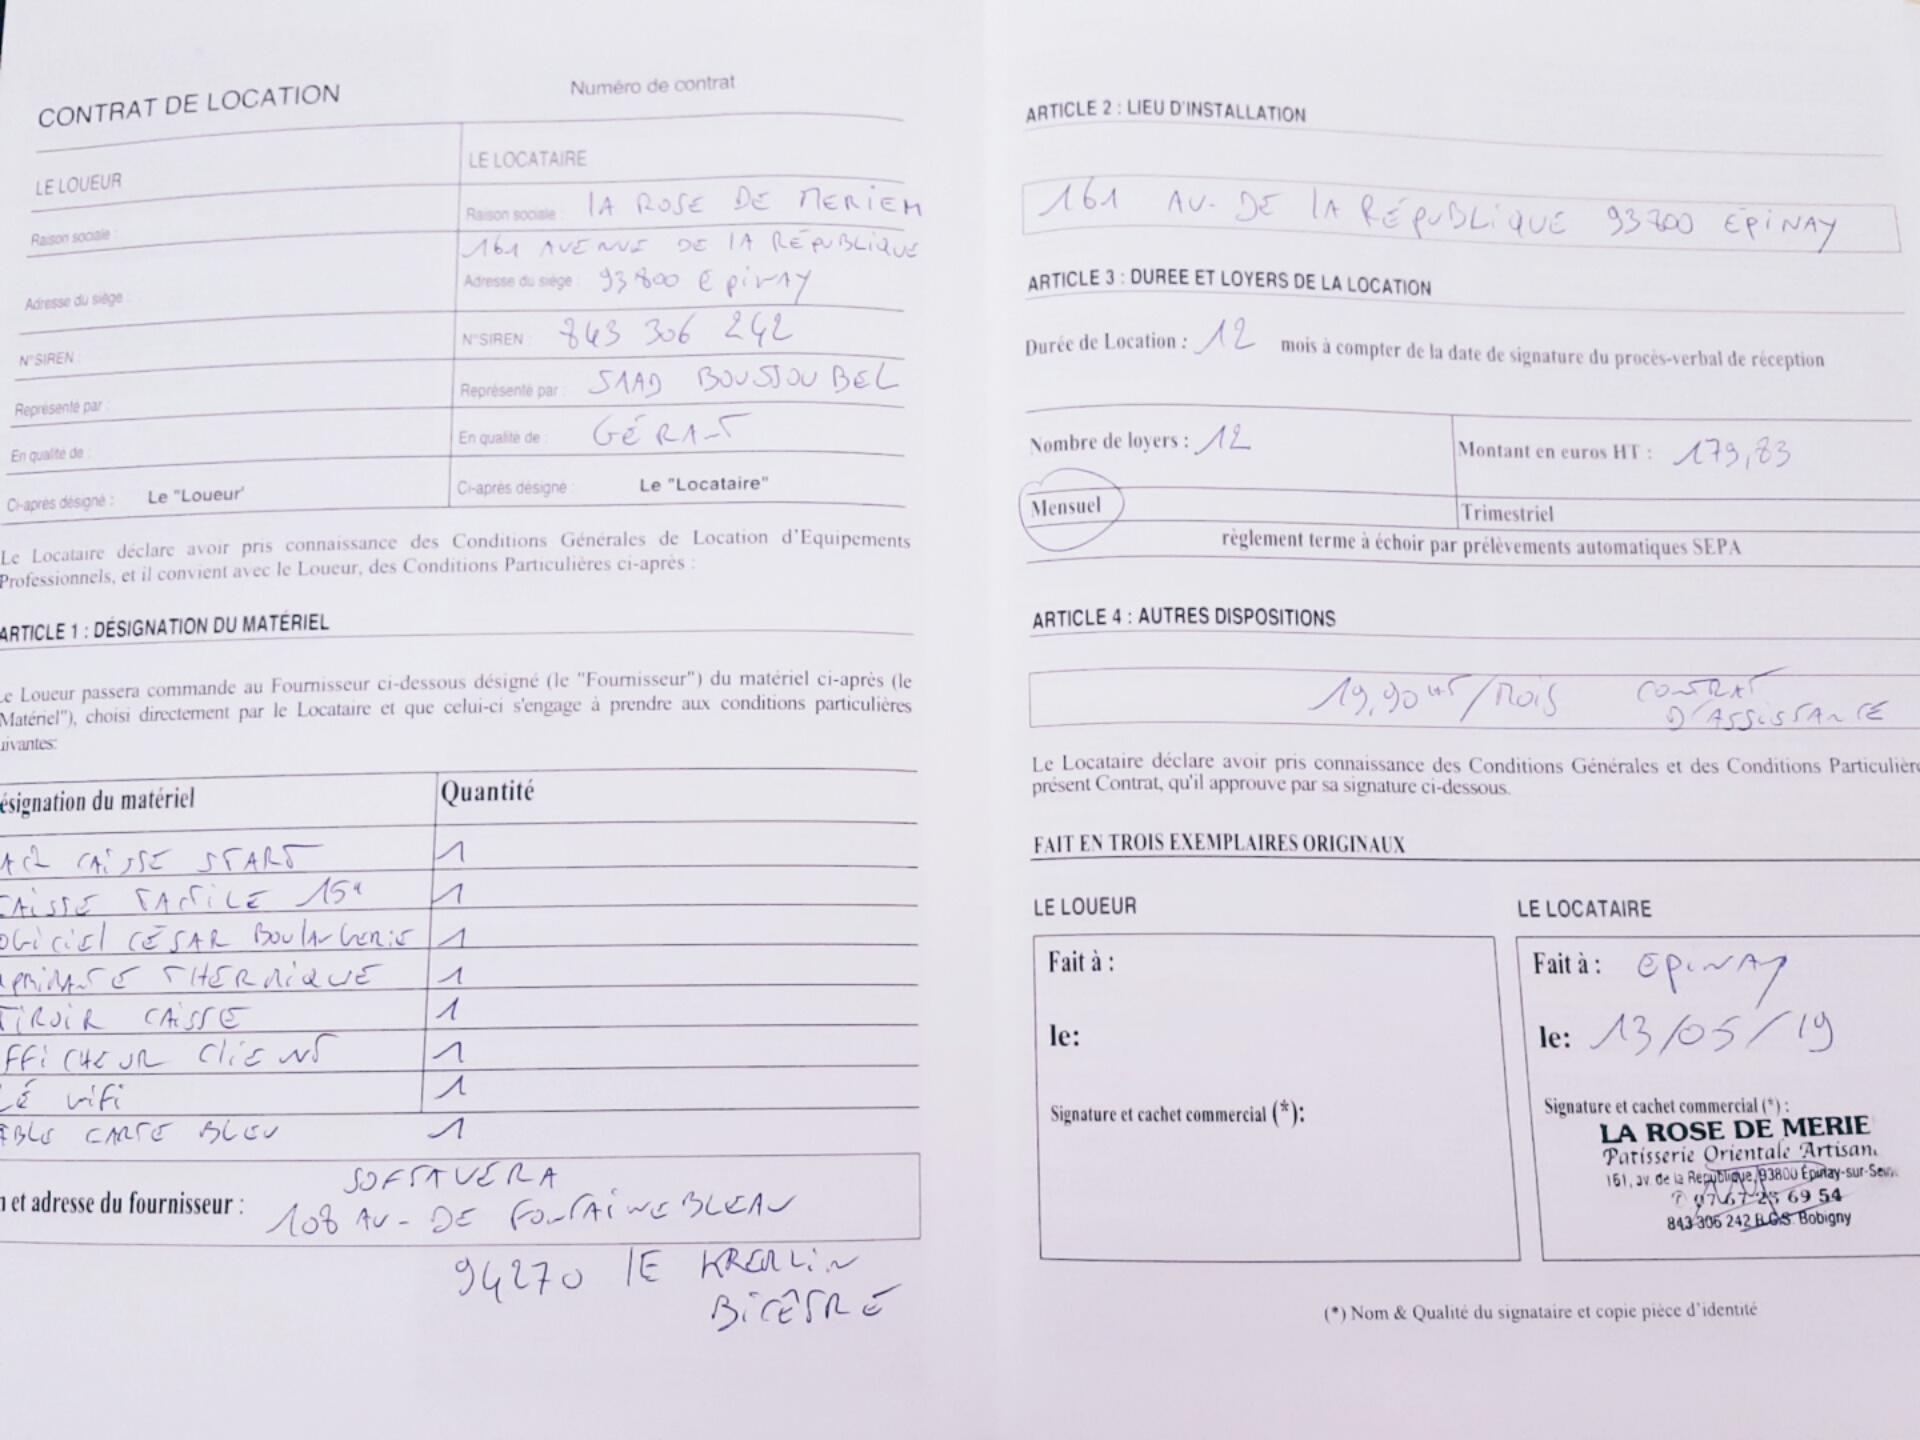 CONTRAT DE LOCATION
Numéro de contrat
LE LOUEUR
Raison sociale :
Adresse du siège :
N°SIREN :
Représenté par :
En qualité de :
Ci-après désigné : Le "Loueur"
LE LOCATAIRE
Raison sociale : LA ROSE DE MERIEM
161 AVENUE DE LA RÉPUBLIQUE
Adresse du siège : 93800 EPINAY
N°SIREN : 843 306 242
Représenté par : SAAD BOUSSOUBEL
En qualité de : GÉRANT
Ci-après désigné : Le "Locataire"
Le Locataire déclare avoir pris connaissance des Conditions Générales de Location d'Equipements
Professionnels, et il convient avec le Loueur, des Conditions Particulières ci-après :
ARTICLE 1 : DÉSIGNATION DU MATÉRIEL
Le Loueur passera commande au Fournisseur ci-dessous désigné (le "Fournisseur") du matériel ci-après (le
Matériel"), choisi directement par le Locataire et que celui-ci s'engage à prendre aux conditions particulières
uivantes:
ésignation du matériel Quantité
CAISSE START 1
CAISSE TACTILE 15" 1
OGICIEL CÉSAR BOULANGERIE 1
PRIMANTE THERMIQUE 1
TIROIR CAISSE 1
FFICHEUR CLIENT 1
LÉ wifi 1
BLE CARTE BLEU 1
et adresse du fournisseur : SOFTAVERA
108 AV. DE FONTAINEBLEAU
94270 LE KREMLIN
BICÊTRE
ARTICLE 2 : LIEU D'INSTALLATION
161 AV. DE LA RÉPUBLIQUE 93800 EPINAY
ARTICLE 3 : DUREE ET LOYERS DE LA LOCATION
Durée de Location : 12 mois à compter de la date de signature du procès-verbal de réception
Nombre de loyers : 12 Montant en euros HT : 179,83
Mensuel Trimestriel
règlement terme à échoir par prélèvements automatiques SEPA
ARTICLE 4 : AUTRES DISPOSITIONS
19,90 HT/MOIS CONTRAT
D'ASSISTANCE
Le Locataire déclare avoir pris connaissance des Conditions Générales et des Conditions Particulière
présent Contrat, qu'il approuve par sa signature ci-dessous.
FAIT EN TROIS EXEMPLAIRES ORIGINAUX
LE LOUEUR
Fait à :
le:
Signature et cachet commercial (*):
LE LOCATAIRE
Fait à : EPINAY
le: 13/05/19
Signature et cachet commercial (*) :
LA ROSE DE MERIE
Patisserie Orientale Artisan
161, av. de la République, 93800 Épinay-sur-Sei
07 67 25 69 54
843 306 242 R.C.S. Bobigny
(*) Nom & Qualité du signataire et copie pièce d'identité